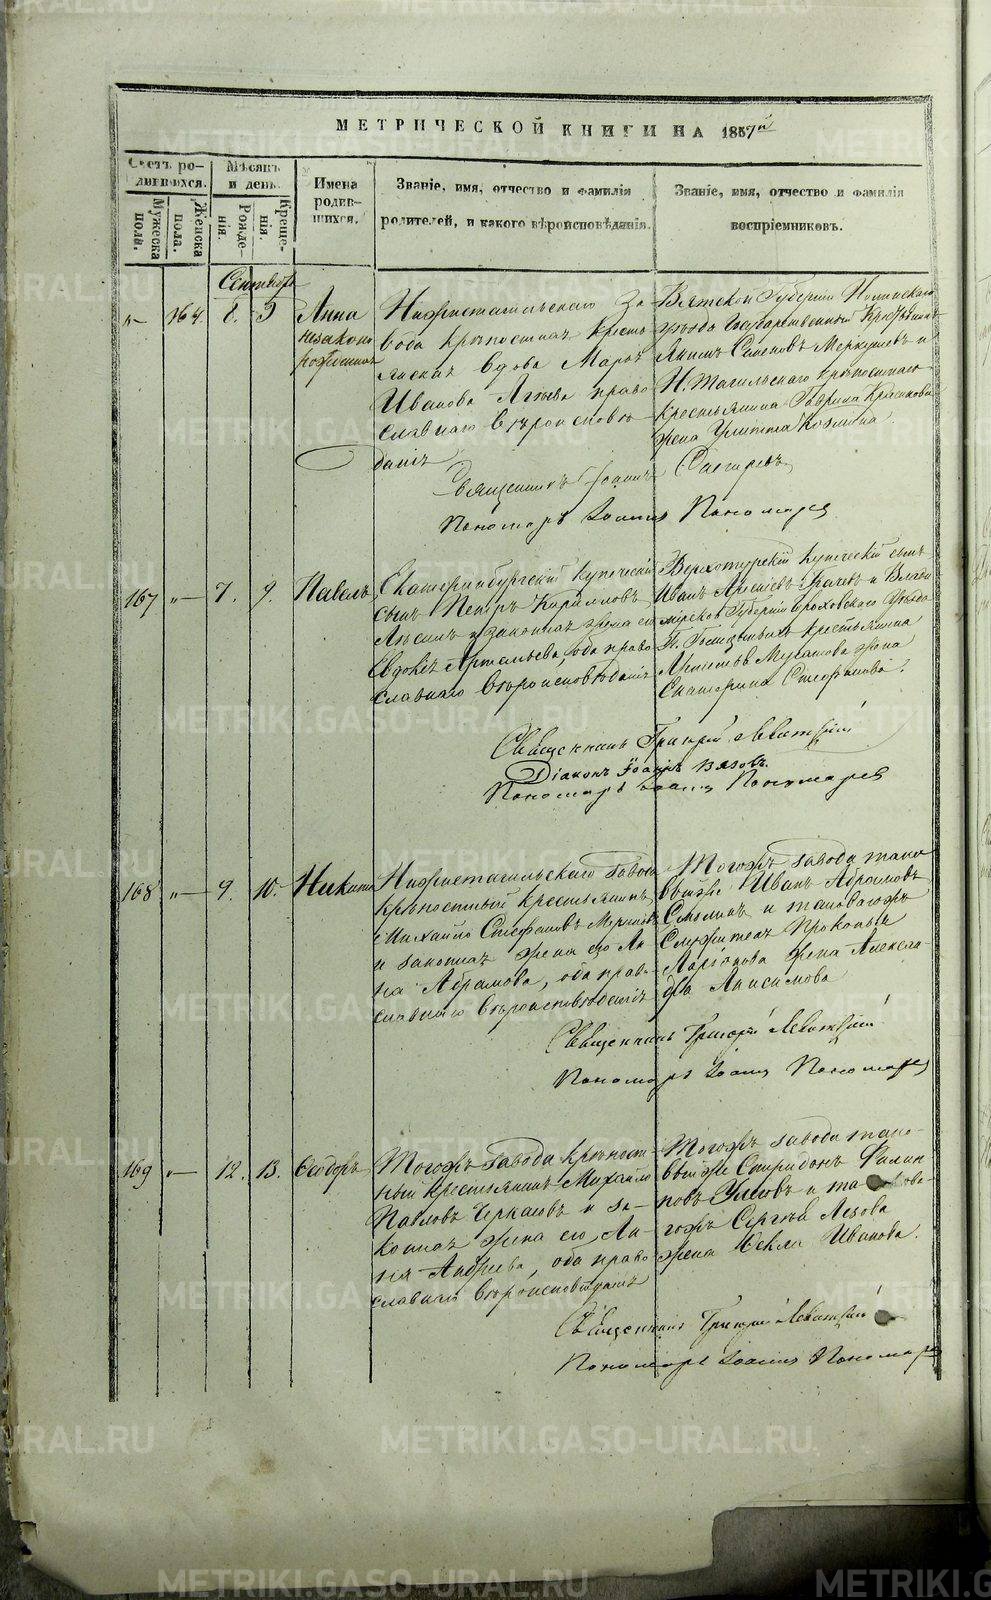 МЕТРИЧЕСКОЙ КНИГИ НА 1857й
Счетъ родившихся.
Мѣсяцъ и день.
Имена родившихся.
Званіе, имя, отчество и фамилія родителей, и какого вѣроисповѣданія.
Званіе, имя, отчество и фамилія воспріемниковъ.
Мужеска пола.
Женска пола.
Рожденія.
Крещенія.
Сентябрь
164. 8. 9
Анна
незаконно
рожденная
Нижнетагильскаго За
вода крѣпостная кресть
янская вдова Марья
Иванова православнаго вѣроисповѣ
данія
Вятской Губерніи
уѣзда Государственный Крестьянинъ
Семеновъ Меркушевъ и
Н. Тагильскаго крѣпостнаго
крестьянина Гаврила
жена Улитта Козмина
Священникъ Іоаннъ
Пономарь Іоаннъ Пономаревъ
167 „— 7. 9. Павелъ
Екатеринбургскій купеческій
сынъ Петръ Кириловъ
и законная жена его
Евдокія Артемьева, оба право
славнаго вѣроисповѣданія
Верхотурскій купеческій сынъ
Иванъ и Влади
мірской Губерніи Гороховскаго Уѣзда
крестьянина
жена
Екатерина Стефанова.
Священникъ Григорій Левитскій
Діаконъ Іоаннъ Вязовъ.
Пономарь Іоаннъ Пономаревъ
168 „— 9. 10. Никита
Нижнетагильскаго завода
крѣпостный крестьянинъ
Михайло Стефановъ
и законная жена его Ан
на Абрамова, оба право
славнаго вѣроисповѣданія
Тогожъ завода тако
выйже Иванъ Абрамовъ
Смолинъ и таковагожъ
Служителя Прокопья
Ларіонова жена Алексан
дра Анисимова
Священникъ Григорій Левитскій
Пономарь Іоаннъ Пономаревъ
169 „— 12. 13. Ѳеодоръ
Тогожъ завода крѣпост
ный крестьянинъ Михайло
Павловъ Черкасовъ и за
конная жена его Ан
на Андреева, оба право
славнаго вѣроисповѣданія
Тогожъ завода тако
выйже Спиридонъ Филип
повъ Усовъ и
гожъ Сергѣя Лезова
жена Ѳекла Иванова.
Священникъ Григорій Левитскій
Пономарь Іоаннъ Пономаревъ
METRIKI.GASO-URAL.RU